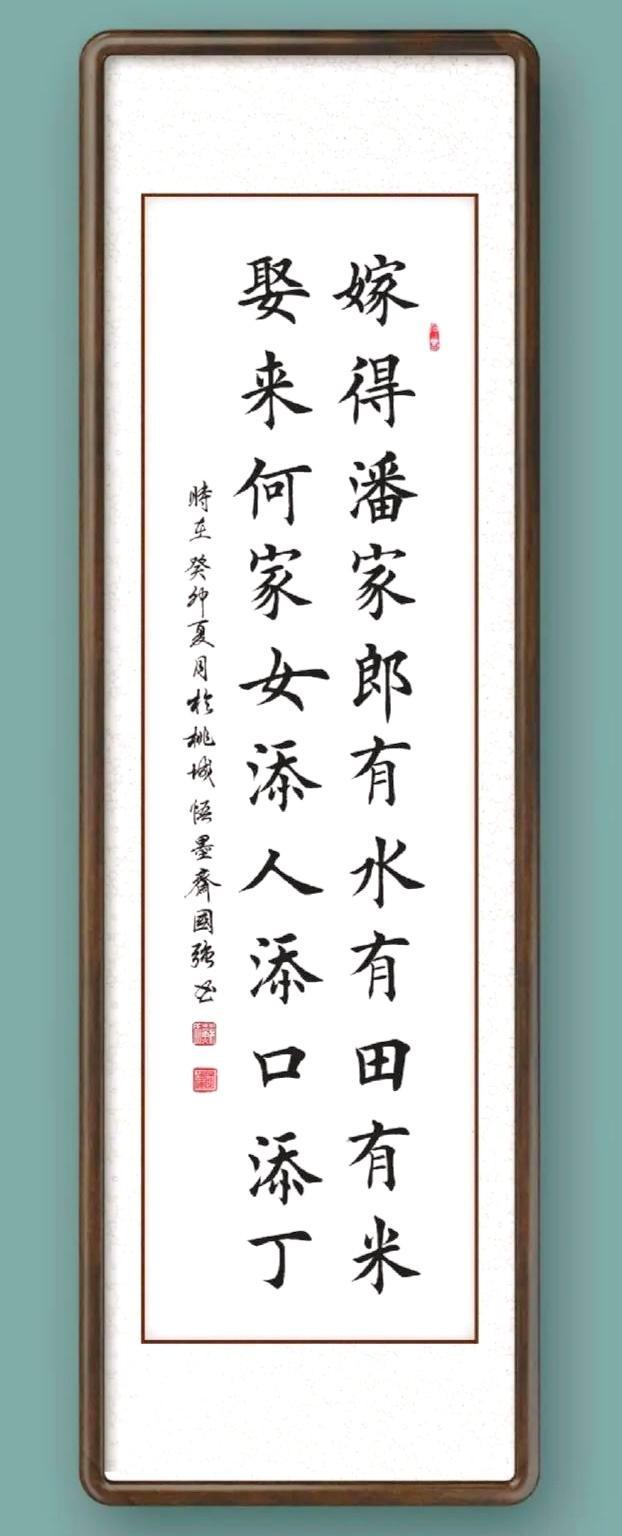 嫁得潘家郎有水有田有米
娶来何家女添人添口添丁
時在癸卯夏月於桃城悟墨齋國強书